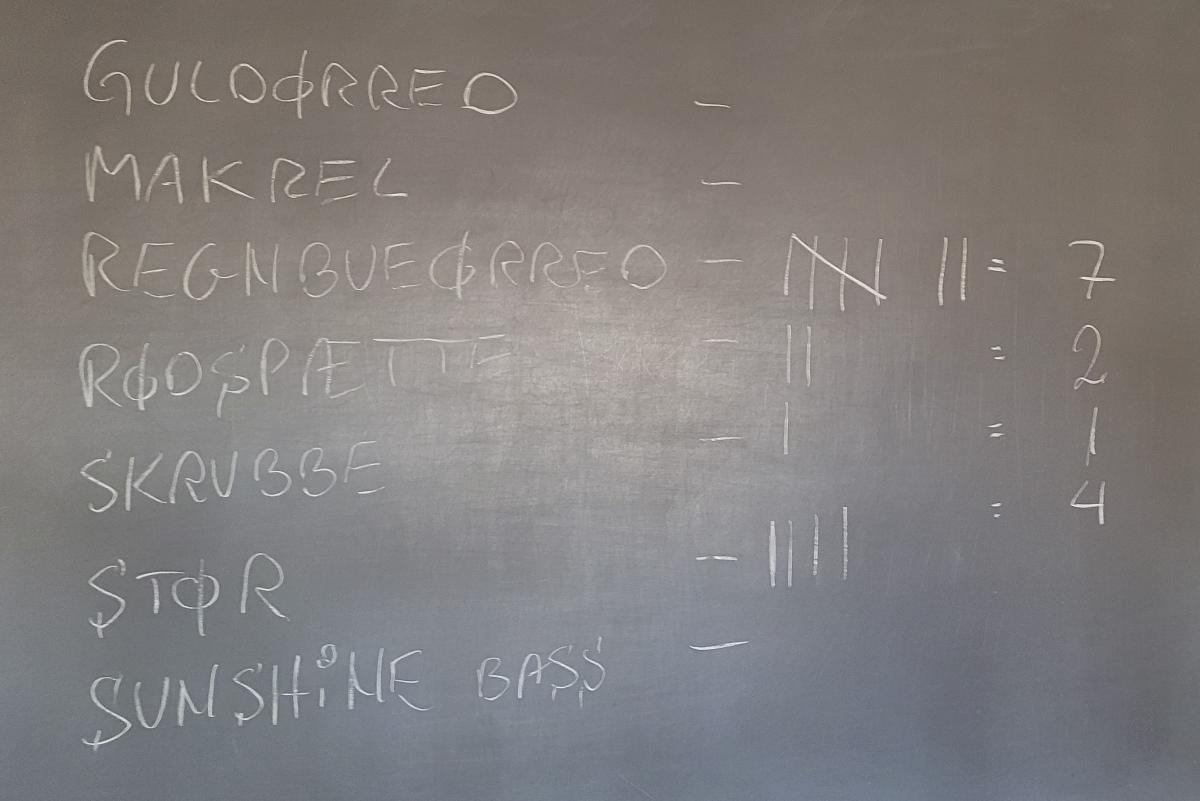 GULDØRRED -
MAKREL -
REGNBUEØRRED - |||| || = 7
RØDSPÆTTE - || = 2
SKRUBBE - | = 1
STØR - |||| = 4
SUNSHiNE BASS -